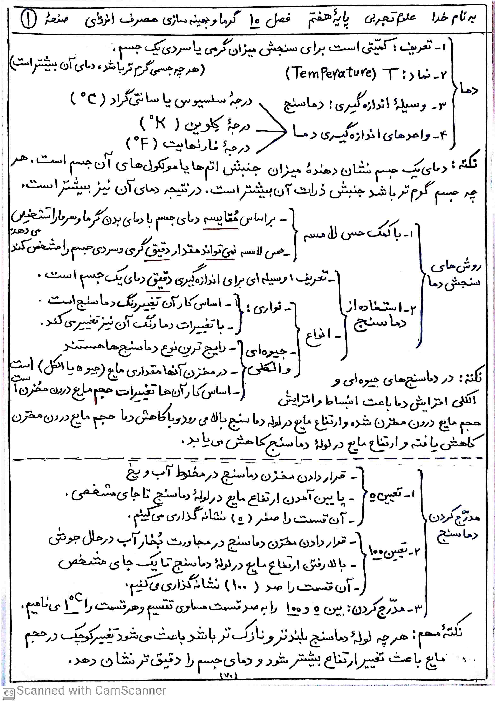 به نام خدا علوم تجربی پایهٔ هفتم فصل ۱۰ گرما و بهینه سازی مصرف انرژی صفحهٔ ۱
دما
۱- تعریف: کمیتی است برای سنجش میزان گرمی یا سردی یک جسم.
(هرچه جسمی گرم تر باشد، دمای آن بیشتر است)
۲- نماد: T (Temperature)
۳- وسیلهٔ اندازه گیری: دماسنج
۴- واحدهای اندازه گیری دما
درجهٔ سلسیوس یا سانتی گراد (°C)
درجهٔ کلوین (°K)
درجهٔ فارنهایت (°F)
نکته: دمای یک جسم نشان دهندهٔ میزان جنبش اتم ها یا مولکول های آن جسم است. هر
چه جسم گرم تر باشد جنبش ذرات آن بیشتر است. در نتیجه دمای آن نیز بیشتر است.
روش های سنجش دما
۱- با کمک حس لامسه
- بر اساس مقایسه دمای جسم با دمای بدن گرما و سرما را تشخیص می دهد
- حس لامسه نمی تواند مقدار دقیق گرمی و سردی جسم را مشخص کند
۲- استفاده از دماسنج
تعریف: وسیله ای برای اندازه گیری دقیق دمای یک جسم است.
انواع
- نواری:
- اساس کار آن تغییر رنگ دماسنج است.
- با تغییرات دما رنگ آن نیز تغییر می کند.
- جیوه ای و الکلی
- رایج ترین نوع دماسنج ها هستند
- در مخزن آنها مقداری مایع (جیوه یا الکل) است
- اساس کار آن ها تغییرات حجم مایع درون مخزن است
نکته: در دماسنج های جیوه ای و
الکلی افزایش دما باعث انبساط و افزایش
حجم مایع درون مخزن شده و ارتفاع مایع در لولهٔ دماسنج بالا می رود و با کاهش دما حجم مایع درون مخزن
کاهش یافته و ارتفاع مایع در لولهٔ دماسنج کاهش می یابد.
مدرّج کردن دماسنج
۱- تعیین ۰
- قرار دادن مخزن دماسنج در مخلوط آب و یخ
- پایین آمدن ارتفاع مایع در لولهٔ دماسنج تا جای مشخصی.
- آن قسمت را صفر (۰) نشانه گذاری می کنیم.
۲- تعیین ۱۰۰
- قرار دادن مخزن دماسنج در مجاورت بخار آب در حال جوش
- بالا رفتن ارتفاع مایع در لولهٔ دماسنج تا یک جای مشخص
- آن قسمت را صد (۱۰۰) نشانه گذاری می کنیم.
۳- مدرّج کردن: بین ۰ و ۱۰۰ را به صد قسمت مساوی تقسیم و هر قسمت را ۱°C می نامیم.
نکتهٔ مهم: هرچه لولهٔ دماسنج بلندتر و نازک تر باشد باعث می شود تغییر کوچک در حجم
مایع باعث تغییر ارتفاع بیشتر شود و دمای جسم را دقیق تر نشان دهد.
(۷۰)
CS Scanned with CamScanner